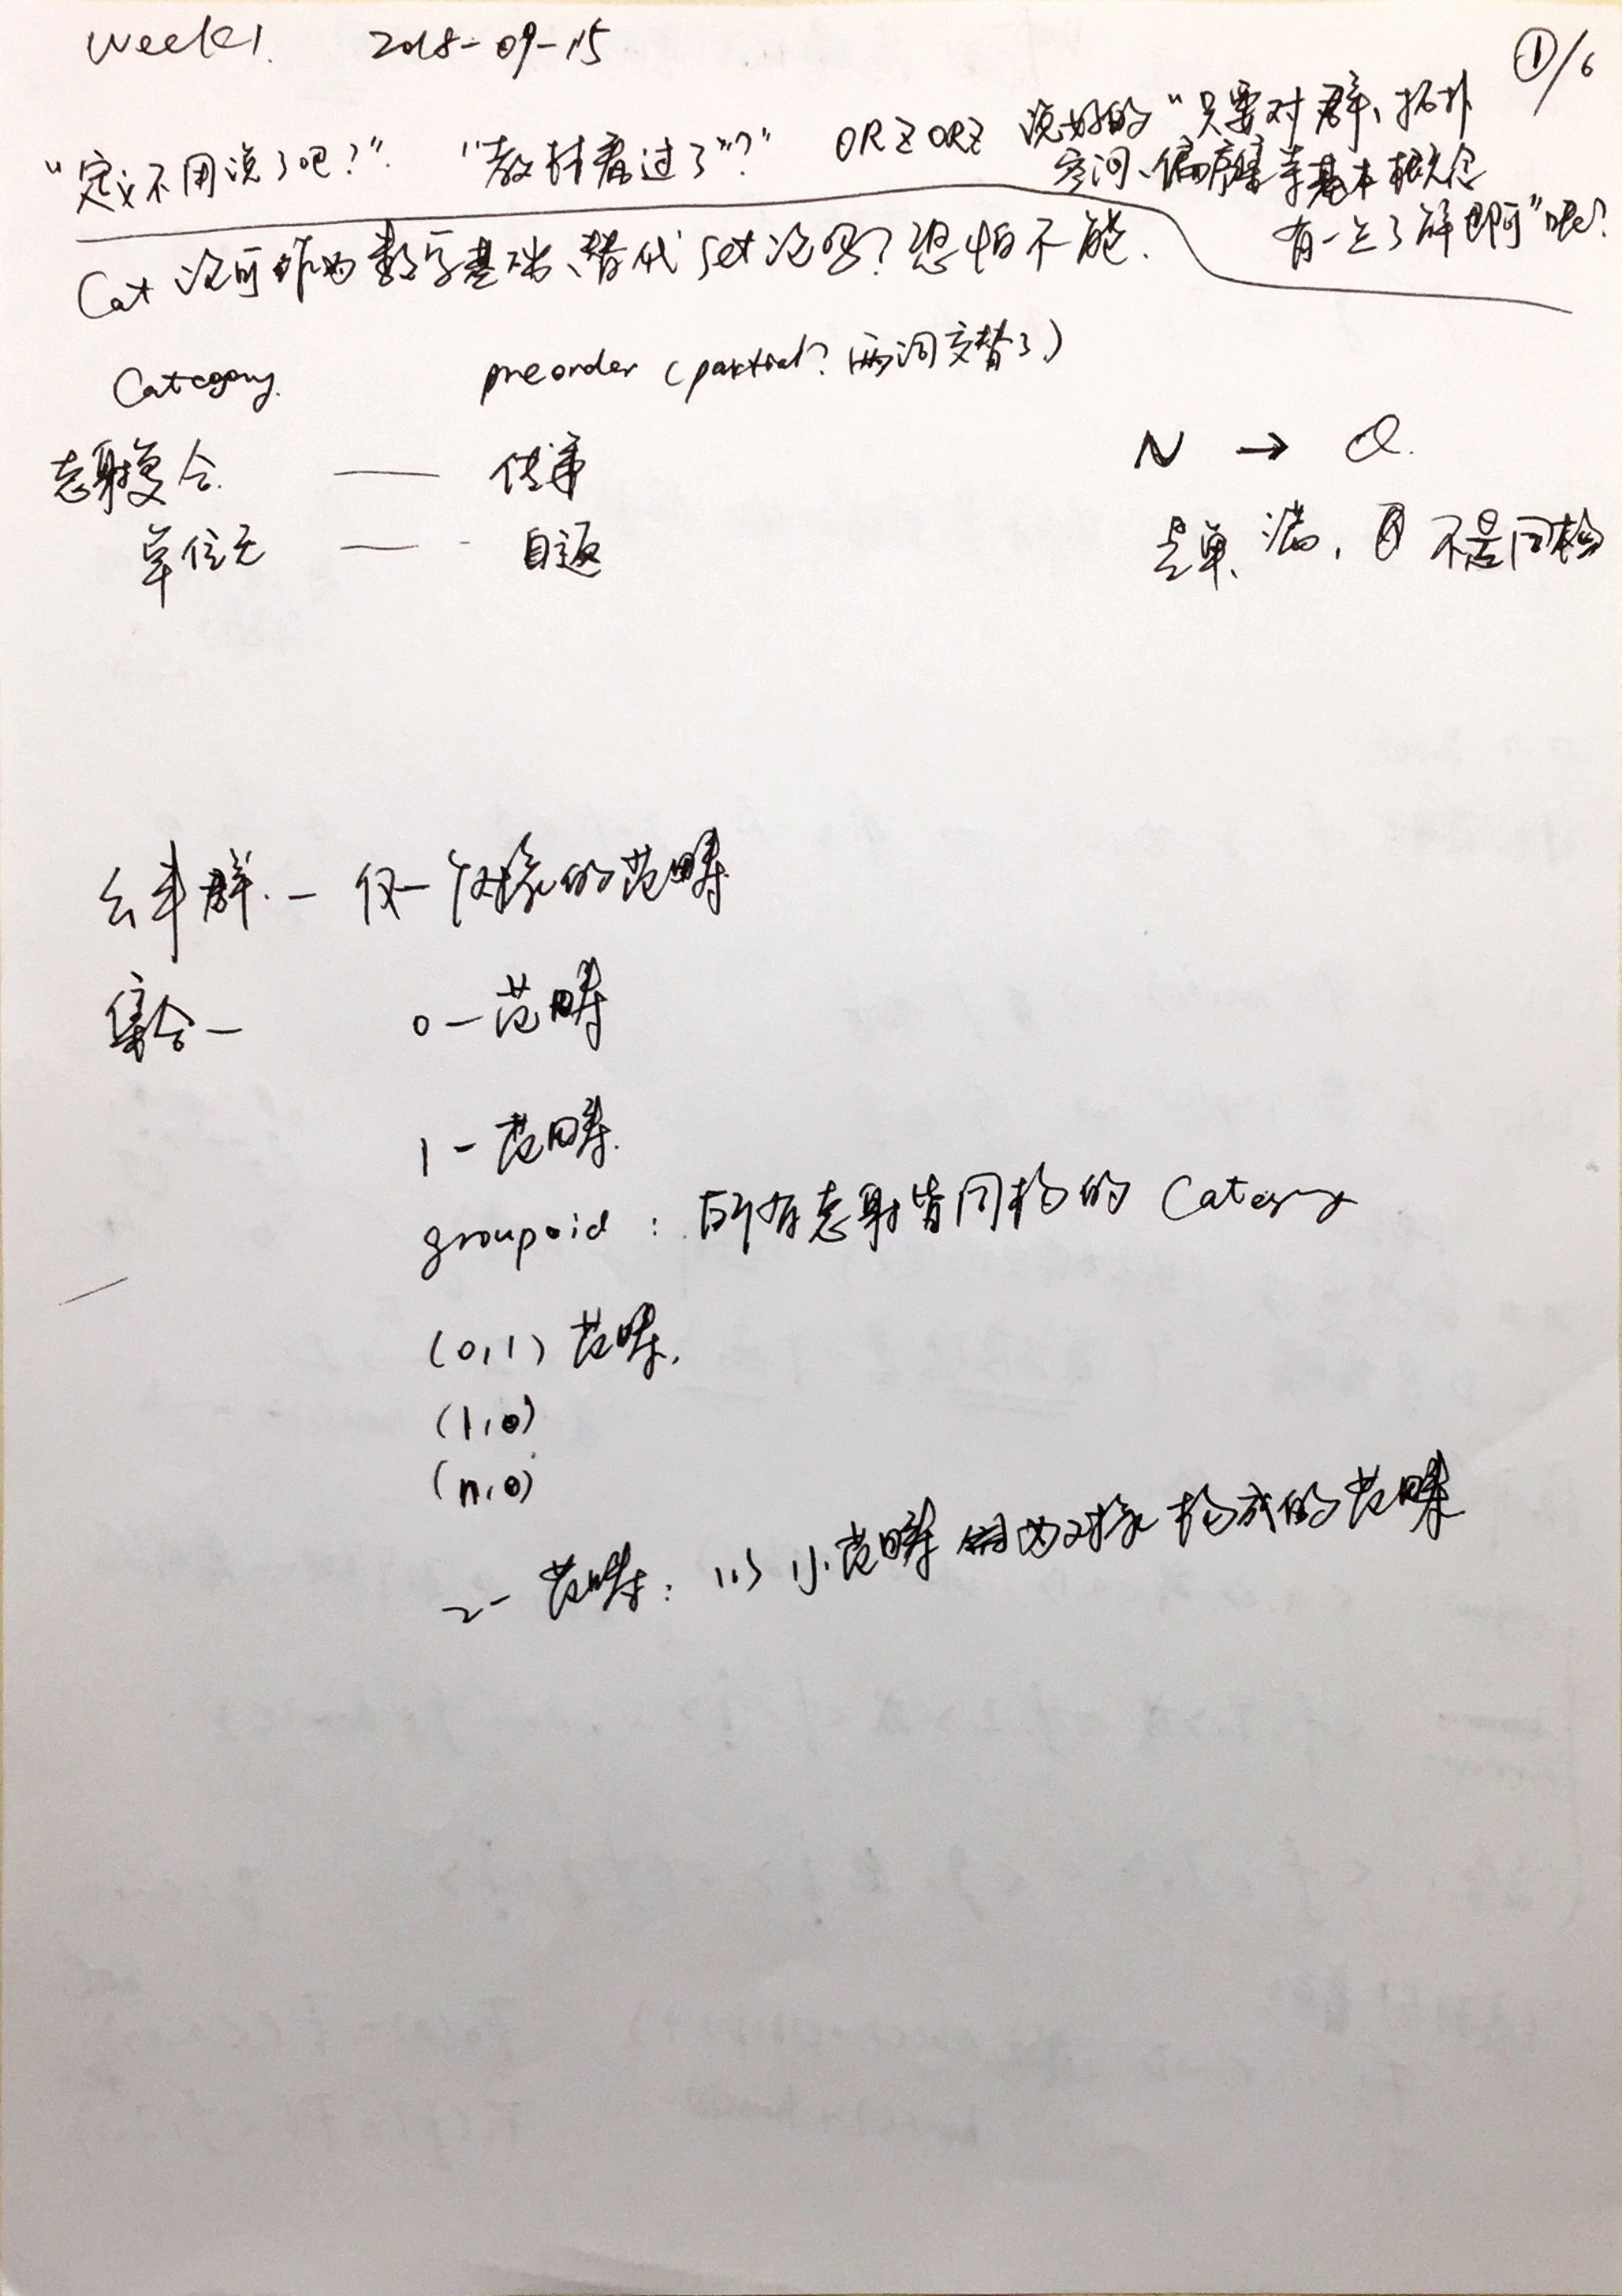 Week1. 2018-09-15
①/6
"定义不用说了吧?". "教材看过了"?" ORZ ORZ 说好的"只要对群、拓扑
空间、偏序集等基本概念
有一点了解即可"呢?
Cat 论可作为数学基础、替代 set 论吗? 恐怕不能.
Category. preorder (partial? 两词交替了)
态射复合. —— 传递
N → Q.
单位元 —— 自返
是单、满, 不是同构
幺半群. — 仅一个对象的范畴
集合 — 0-范畴
1-范畴.
groupoid : 所有态射皆同构的 Category
(0,1) 范畴.
(1,0)
(n,0)
2-范畴: 以小范畴为对象构成的范畴